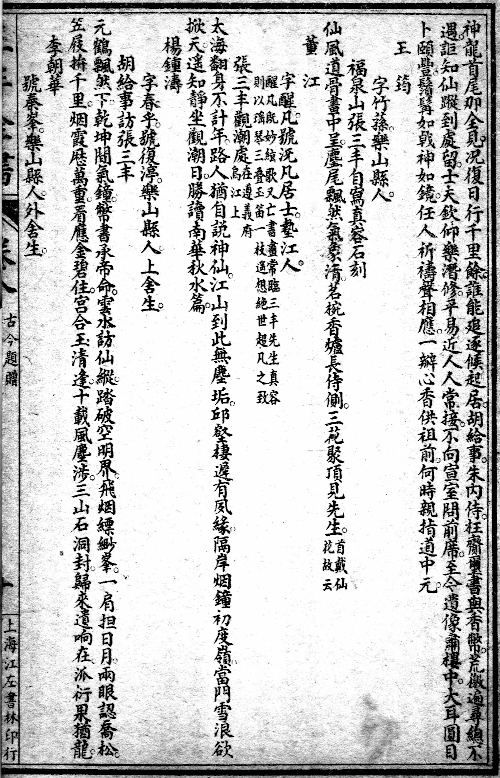 神龍首尾那全見況復日行千里餘誰能追逐候起居胡給事朱內侍枉齎璽書與香幣荒徼遍尋總不
遇詎知仙蹤到處留士夫欽仰樂潛修平易近人人常接不向宣室問前席至今遺像肅樓中大耳圓目
卜頤豐鬚髯如戟神如鏡任人祈禱聲相應一瓣心香供祖前何時親指道中元
王筠
字竹蓀樂山縣人
福泉山張三丰自寫真容石刻
仙風道骨畫中呈麈尾飄然氣象清茗椀香爐長侍側三花聚頂見先生首戴仙花故云
董江
字醒凡號況凡居士墊江人
醒凡既妙絃歌又亡書畫常臨三丰先生真容
則以瑤琴三疊玉笛一枝遐想絶世超凡之致
張三丰觀潮處在遵義府烏江上
太海翻身不計年路人猶自說神仙江山到此無塵垢邱壑棲遲有夙緣隔岸烟鐘初度嶺當門雪浪欲
掀天遥知靜坐觀潮日勝讀南華秋水篇
楊鍾濤
字春乎號復淳樂山縣人上舍生
胡給事訪張三丰
元鶴飄然下乾坤閒氣鍾幣書承帝命雲水訪仙縱踏破空明界飛烟縹緲峯一肩担日月兩眼認喬松
笠屐拚千里烟霞歷萬重看應金碧住宮合玉清逢十載風塵涉三山石洞封歸來遺响在派衍果猶龍
李朝華
號秦峯樂山縣人外舍生
古今題贈
上海江左書林印行